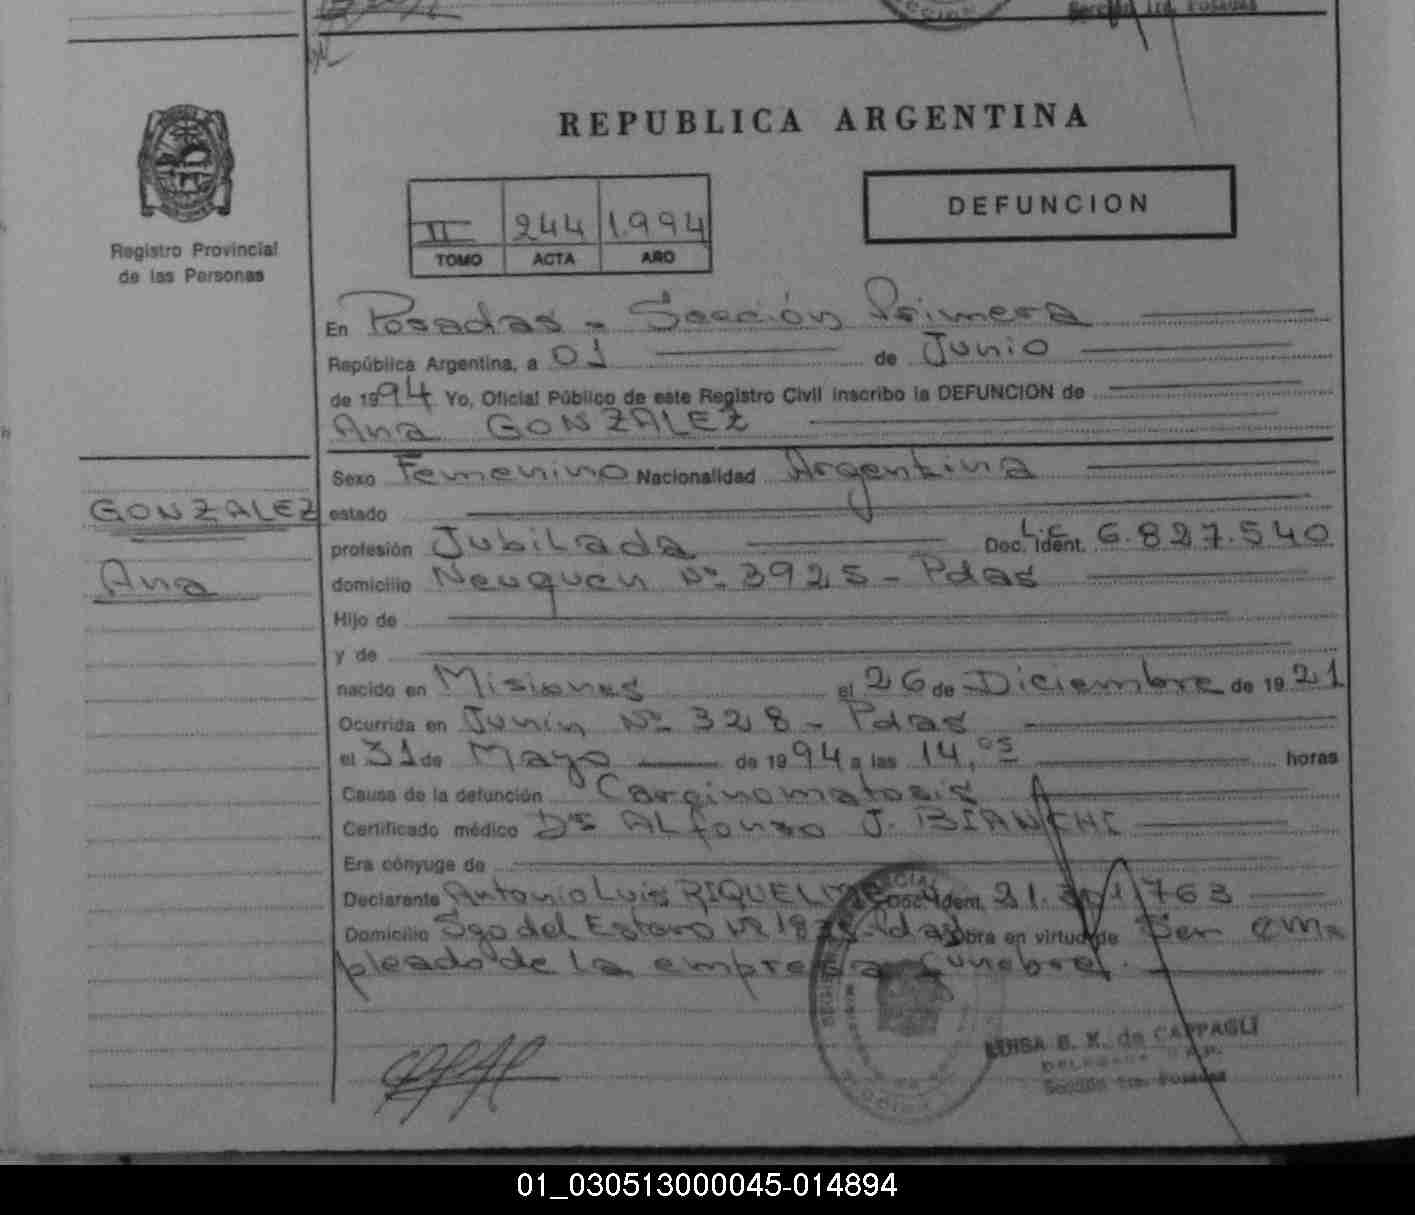 REPUBLICA ARGENTINA
Registro Provincial
de las Personas
II 244 1.994
TOMO ACTA AÑO
DEFUNCION
En Posadas - Sección Primera
República Argentina, a 01 de Junio
de 1994 Yo, Oficial Público de este Registro Civil inscribo la DEFUNCION de
Ana GONZALEZ
GONZALEZ
Ana
Sexo Femenino Nacionalidad Argentina
estado
profesión Jubilada Doc. Ident. L.C 6.827.540
domicilio Neuquen Nº 3925 - Pdas
Hijo de
y de
nacido en Misiones el 26 de Diciembre de 1921
Ocurrida en Junin Nº 328 - Pdas
el 31 de Mayo de 1994 a las 14,05 horas
Causa de la defunción Carcinomatosis
Certificado médico Dr Alfonso J. BIANCHI
Era cónyuge de
Declarante Antonio Luis RIQUELME Doc. Ident. 21. 763
Domicilio Sgo del Estero Nº Pdas obra en virtud de Ser em
pleado de la empresa funebre.
LUISA B. K. de CAPPAGLI
Sección 1ra. Posadas
01_030513000045-014894